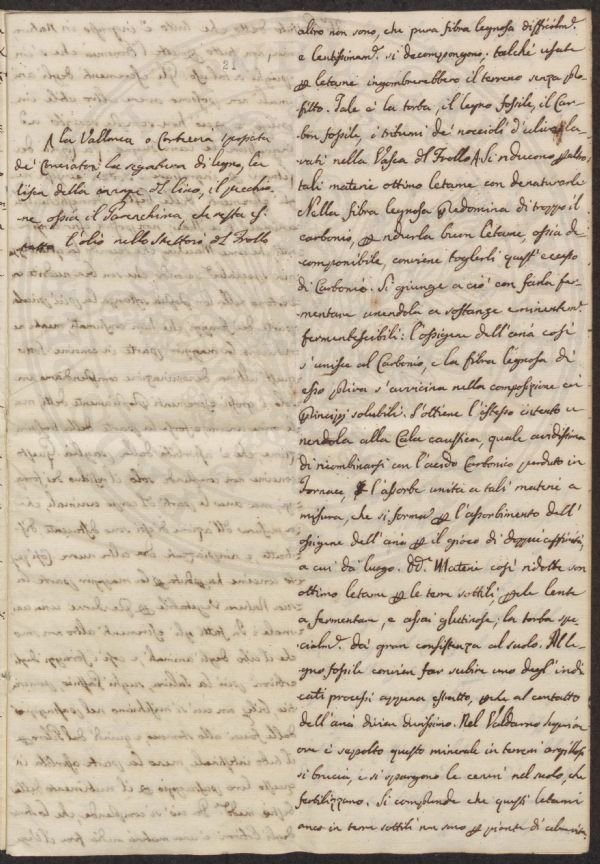 altro non sono, che pura fibra legnosa difficilm.
e lentissimam. si decompongono. talchè usate
letame ingombrerebbero il terreno senza
fitto. Tale è la torba, il legno fossile, il Car-
bon fossile, i tritumi de' noccioli d'ulive la-
vati nella Vasca Frollo. Si riducono
tali materie ottimo letame con denaturarle
Nella fibra legnosa predomina di troppo il
carbonio, ridurla buon letame, ossia de
componibile conviene toglierli quest'eccesso
di Carbonio. Si giunge a ciò con farla fer-
mentare unendola a sostanze eminentem.
fermentescibili: l'ossigene dell'aria così
s'unisce al Carbonio, e la fibra legnosa di
esso priva s'avvicina nella composizione ai
principj solubili. S'ottiene l'istesso intento u
nendola alla Calce caustica, quale avidissima
di ricombinarsi con l'acido Carbonico perduto in
Fornace, l'assorbe unita a tali materie a
misura, che si forma l'assorbimento dell'
ossigene dell'aria il gioco di doppie affinità,
a cui dà luogo. Materie così ridotte son
ottimo letame le terre sottili, lente
a fermentare, e assai glutinose; la torba spe
cialm. dà gran consistenza al suolo. Al le-
gno fossile convien far subire uno degl'indi
cati processi appena estratto, al contatto
dell'aria divien durissimo. Nel Valdarno superiore
ove è sepolto questo minerale in terreni argillosi
si brucia, e si spargono le ceneri nel suolo, che
fertilizzano. Si comprende che questi letami
anco in terre sottili non sono piante di
21
la Vallonea o Corteccia
de' Conciatori, la segatura di legno, la
lisca della canapa lino, il
ossia il Parenchima, che resta
l'olio nello Frollo